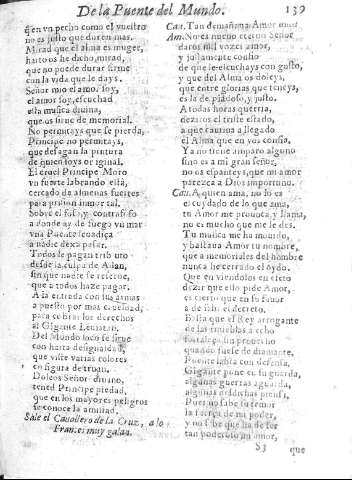 De la Puente del Mundo. 139
q̃ en vn pecho como el vuestro
no es justo que duren mas.
Mirad que el alma es muger,
harto os he dicho, mirad,
que no puede durar firme
con la vida que le days.
Señor mio el amor soy,
el amor soy, escuchad
esta musica diuina,
que os sirue de memorial.
No permitays que se pierda,
Principe no permitays,
que desagan la pintura
de quien soys original.
El cruel Principe Moro
vn fuerte labrando està,
cercado de almenas fuertes
para prision inmortal.
Sobre el foso, y contrafoso
a donde ay de fuego vn mar
vna Puente leuadiça
a nadie dexa pasar.
Todos le pagan tributo
desde la culpa de Adan,
sin que nadie se reserue,
que a todos haze pagar.
A la entrada con sus armas
a puesto por mas crueldad,
para cobrar los derechos
al Gigante Leuiatan.
Del Mundo loco se sirue
con harta desigualdad,
que viste varias colores
en figura de truan.
Doleos Señor diuino,
tened Principe piedad,
que en los mayores peligros
se conoce la amistad.
Sale el Cauallero de la Cruz, a lo
Frances muy galan.
Cau. Tan de mañana Amor mio?
Am. No es nueuo eterno Señor
daros mil vozes amor,
y justamente confio
de que le escuchays con gusto,
y que del Alma os doleys,
que entre glorias que teneys,
es la de piadoso, y justo.
A todas horas querria,
deziros el triste estado,
a que camina a llegado
el Alma que en vos confia.
Ya no tiene amparo alguno
sino es a mi gran señor,
no os espanteys, que mi amor
parezca a Dios importuno.
Cau. A quien ama, no lo es
el cuydado de lo que ama,
tu Amor me prouoca, y llama,
no es mucho que me le des.
Tu musica me ha mouido,
y bastaua Amor tu nombre,
que a memoriales del hombre
nunca he cerrado el oydo.
Que en viendolos en efeto
dezir que ello pide Amor,
es cierto que en su fauor
a de salir el decreto.
Bolla que el Rey arrogante
de las tinieblas a echo
fortaleza sin prouecho
quando fuese de diamante.
Puente labra con defensa,
Gigante pone en su guarda,
algunas guerras aguarda,
algunas desdichas piensa,
Pues no sabe su temor
la fuerça de mi poder,
y no sabe que ha de ser
tan poderoso mi amor,
S3 que